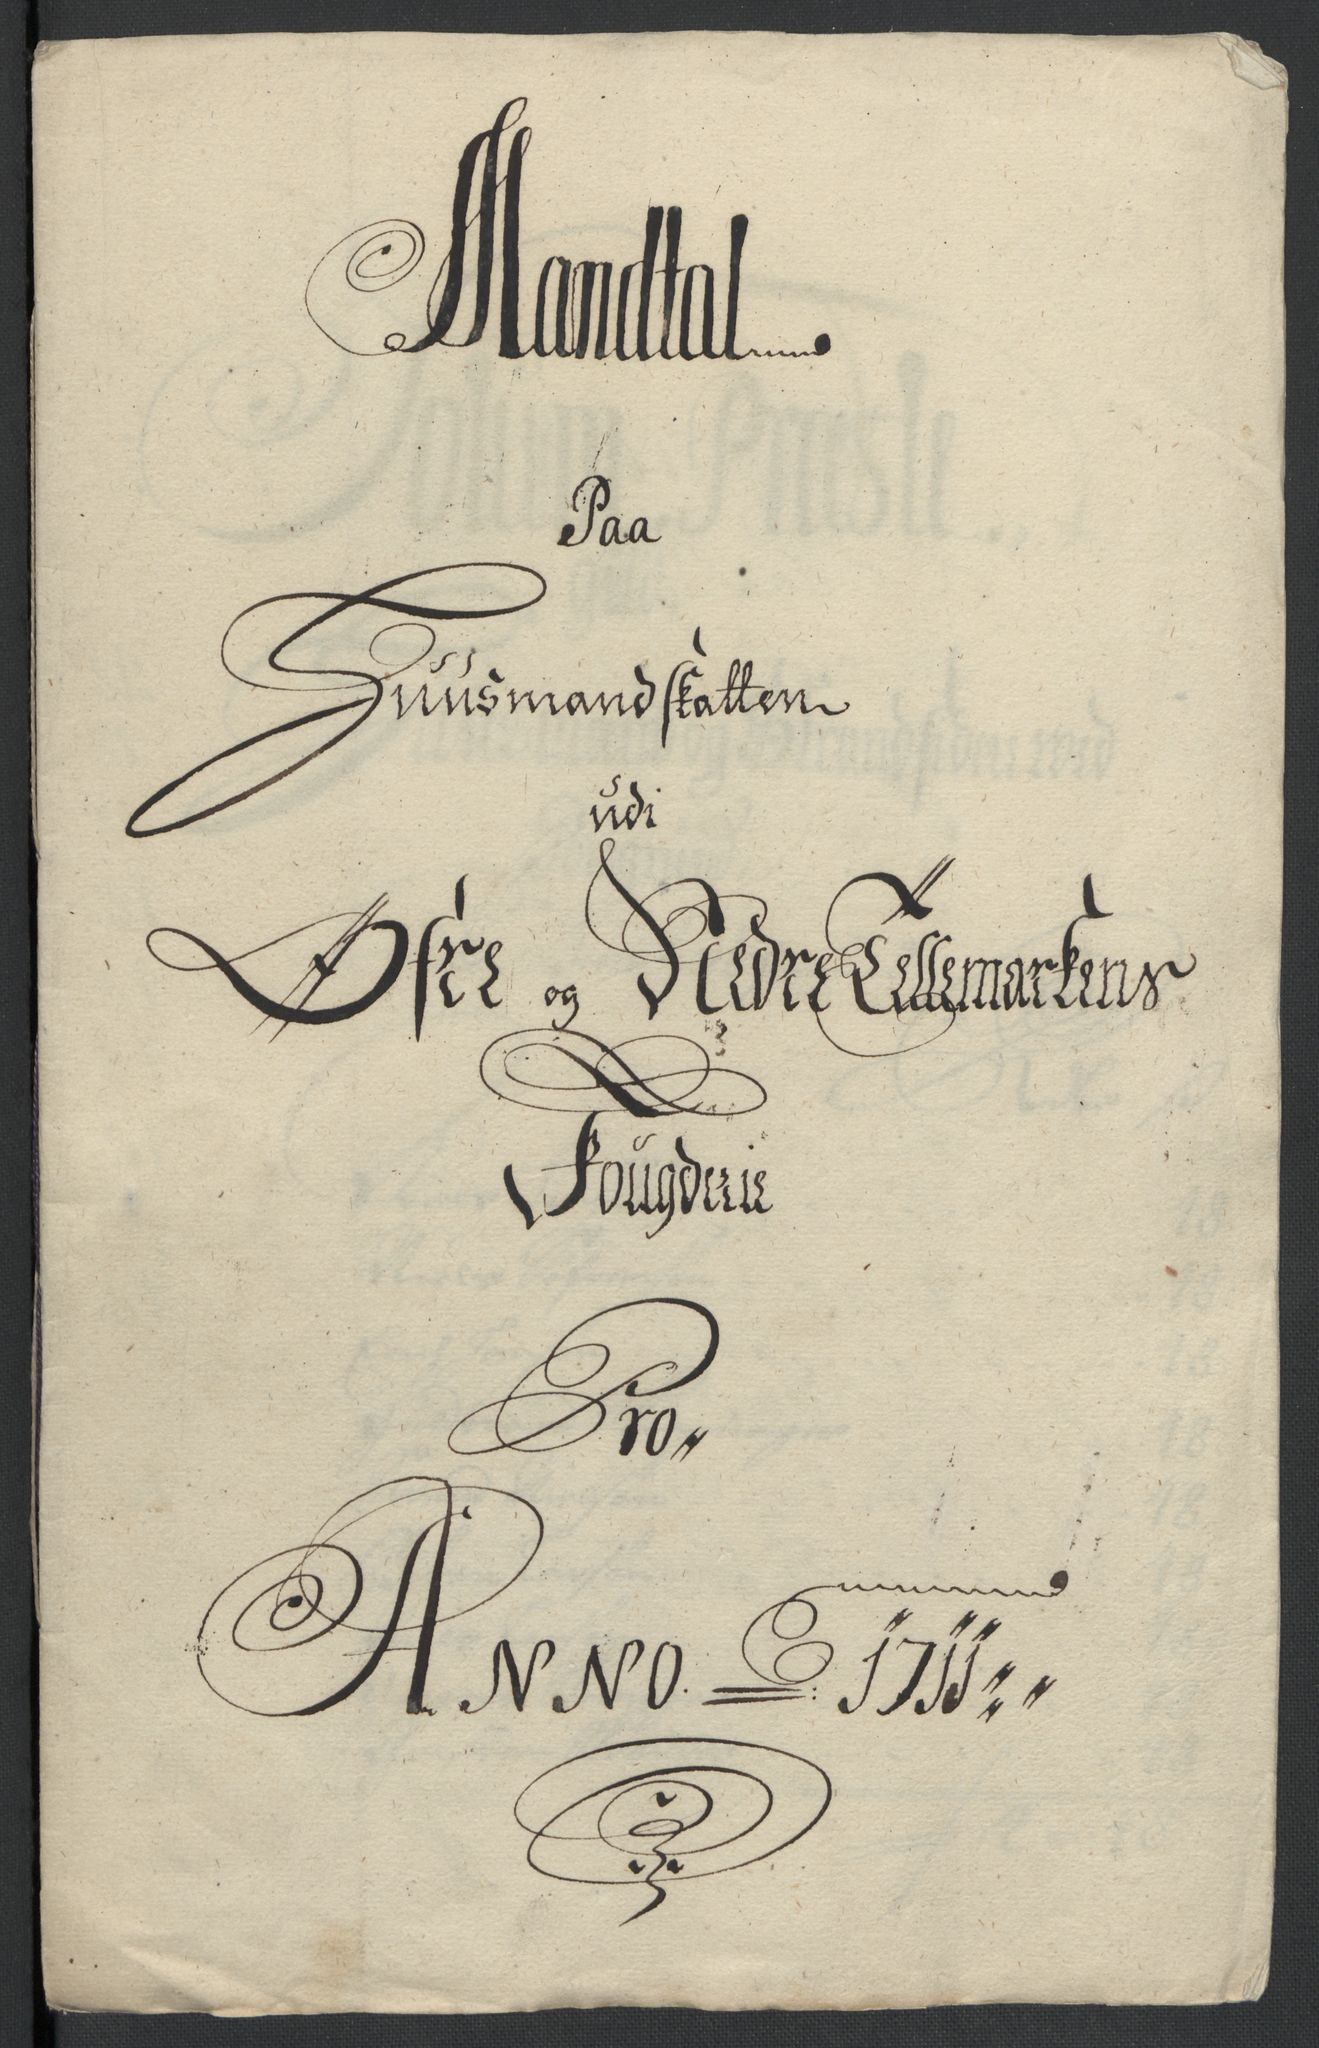 Mandtal
Paa
Huusmandskatten
udi
Øfre og Nedre Tellemarkens
Fougderie
Pro
ANNO 1711